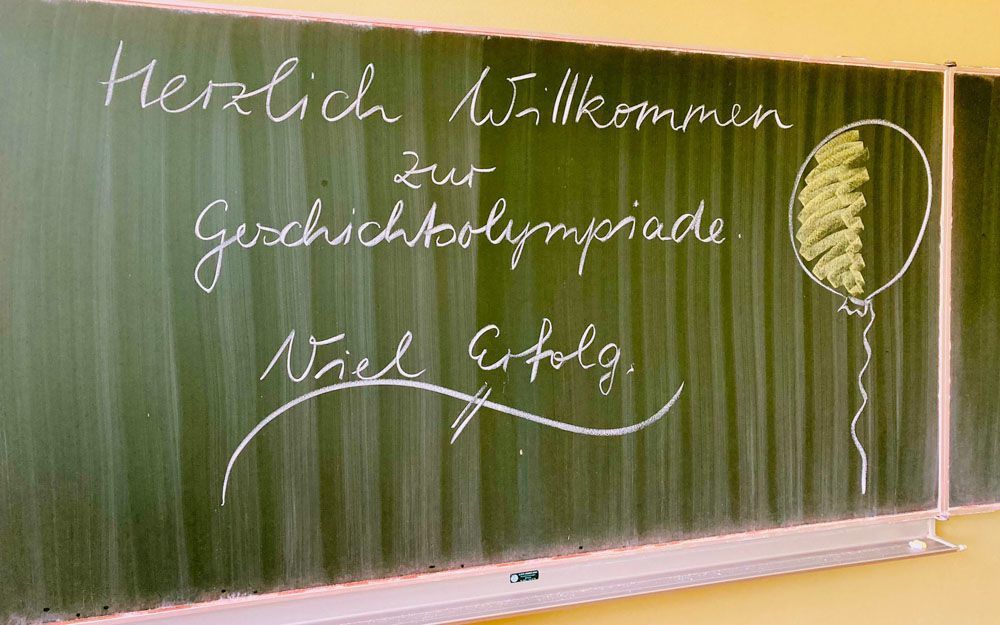 Herzlich Willkommen
zur
Geschichtsolympiade.
Viel Erfolg.